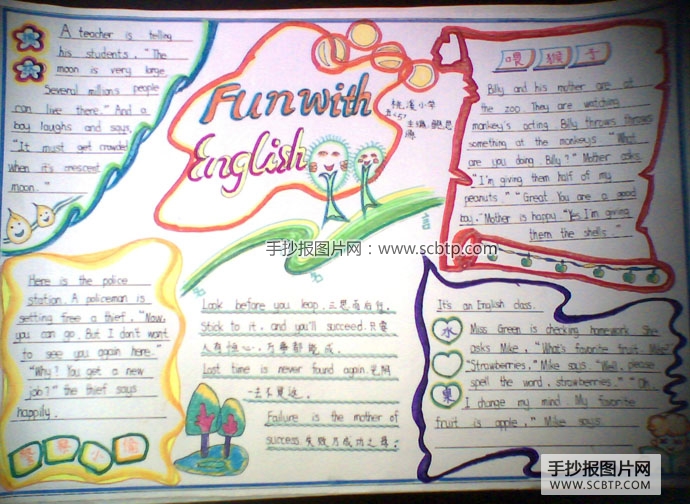 A teacher is telleg
his students. "The
moon is very large
Several millions people
can live there." And a
boy laughs and says,
"It must get crowded
when it's crescent
moon."
Fun with
English
桃溪小学
主编
喂猴子
Billy and his mother are at
the zoo. They are watching
monkey's acting Billy throws throws
something at the monkeys "What
are you doing Billy?" Mother asks.
"I'm giving them half of my
peanuts." "Great You are a good
boy."Mother is happy "Yes I'm giving
them the shells..."
手抄报图片网:www.scbtp.com
Here is the police
station. A policeman is
setting free a thief. "Now,
you can go. But I don't want
to see you again here."
"Why? You get a new
job?" the thief says
happily.
警察小偷
Look before you leap. 三思而后行.
Stick to it, and you'll succeed.只要
人有恒心,万事都能成.
Lost time is never found again.光阴
一去不复返.
Failure is the mother of
success.失败乃成功之母.
It's an English class.
水 Miss Green is cherking homework. She
asks Mike, "What's favorite fruit, Mike?"
"Strawberries," Mike says "Well, please
spell the word, strawberries." "Oh,
果 I change my mind. My favorite
fruit is apple," Mike says.
手抄报图片网
SCBTP.COM